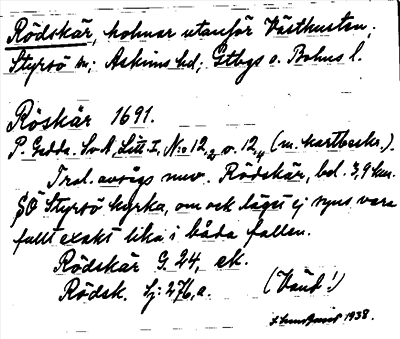 Rödskär, holmar utanför Västkusten;
Styrsö sn; Askims hd; Gtbgs o. Bohus l.
Röskär 1691.
P. Gedda. SvA, Litt I, N:o 12,2 o. 12,4 (m. kartbeskr.).
Trol. avsågs nuv. Rödskär, bel. 3,9 km.
SO Styrsö kyrka, om ock läget ej synes vara
fullt exakt lika i båda fallen.
Rödskär G. 24, ek.
Rödsk. Sj: 276, a. (Vänd!)
1938.